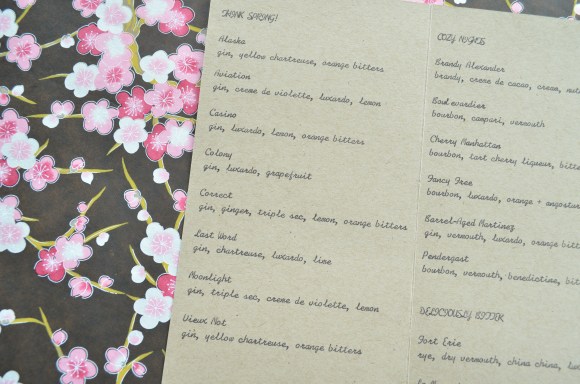 THINK SPRING!
Alaska
gin, yellow chartreuse, orange bitters
Aviation
gin, creme de violette, luxardo, lemon
Casino
gin, luxardo, lemon, orange bitters
Colony
gin, luxardo, grapefruit
Correct
gin, ginger, triple sec, lemon, orange bitters
Last Word
gin, chartreuse, luxardo, lime
Moonlight
gin, triple sec, creme de violette, lemon
Vieux Mot
gin, yellow chartreuse, orange bitters
COZY NIGHTS
Brandy Alexander
brandy, creme de cacao, cream,
Boulevardier
bourbon, campari, vermouth
Cherry Manhattan
bourbon, tart cherry liqueur,
Fancy Free
bourbon, luxardo, orange +
Barrel-Aged Martinez
gin, vermouth, luxardo, orange
Pendergast
bourbon, vermouth, benedictine,
DELICIOUSLY BITTER
Fort Erie
rye, dry vermouth, china china,